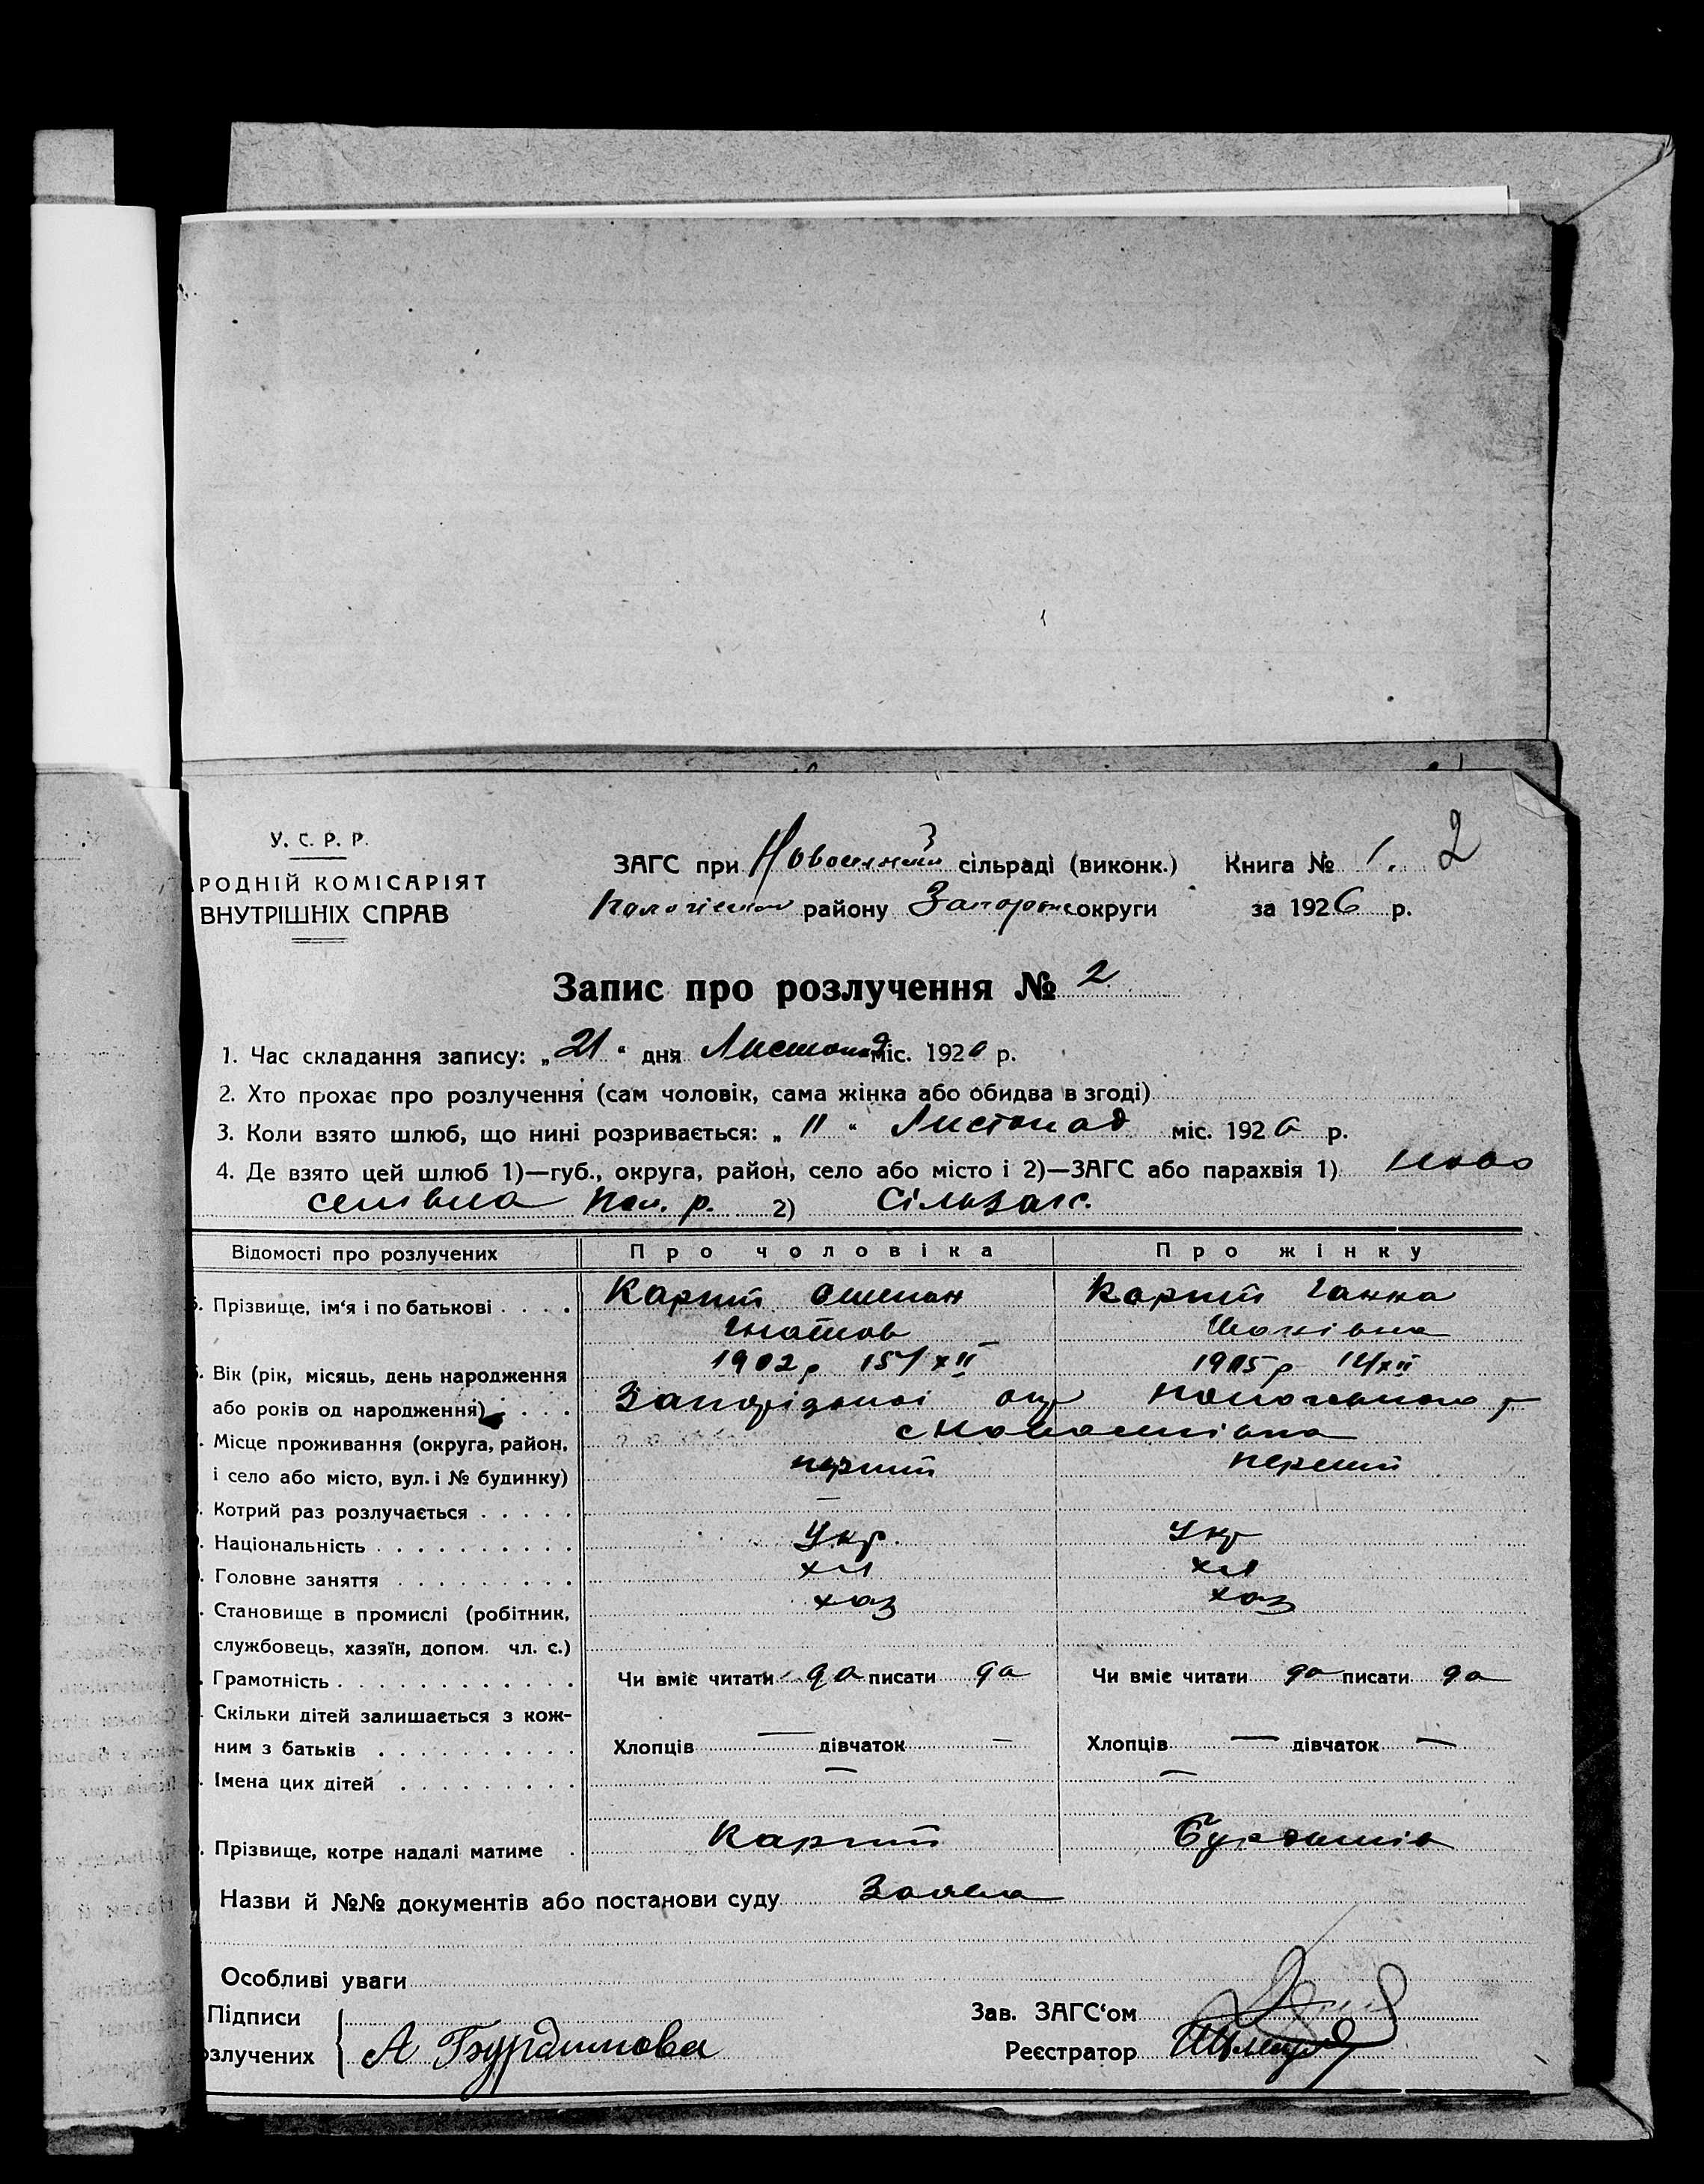 У. С. Р. Р.
РОДНІЙ КОМІСАРІЯТ
ВНУТРІШНІХ СПРАВ
ЗАГС при сільраді (виконк.) Книга № 1. 2
району Запоріж округи за 1926 р.
Запис про розлучення № 2
1. Час складання запису: „21“ дня Листопад міс. 1926 р.
2. Хто прохає про розлучення (сам чоловік, сама жінка або обидва в згоді)
3. Коли взято шлюб, що нині розривається: „11“ Листопад міс. 1926 р.
4. Де взято цей шлюб 1)—губ., округа, район, село або місто і 2)—ЗАГС або парахвія 1) Ново
селівка Пол. р. 2) Сільзагс.
Відомості про розлучених Про чоловіка Про жінку
Прізвище, ім‘я і по батькові Карпит Степан Карпит Ганна
Гнатов
1902 р 15/XII 1905 р 14/XII
Вік (рік, місяць, день народження
або років од народження) Запорізької окр Пологівського р
с Новоселівка
Місце проживання (округа, район,
і село або місто, вул. і № будинку) перший перший
Котрий раз розлучається —
Національність Укр. Укр
Головне заняття хл хл
Становище в промислі (робітник, хаз хаз
службовець, хазяїн, допом. чл. с.)
Грамотність Чи вміє читати да писати да Чи вміє читати да писати да
Скільки дітей залишається з кож-
ним з батьків Хлопців — дівчаток — Хлопців — дівчаток —
Імена цих дітей — —
Прізвище, котре надалі матиме Карпит
Назви й №№ документів або постанови суду Заява
Особливі уваги
Підписи Зав. ЗАГС‘ом
озлучених А Бурдимова Реєстратор